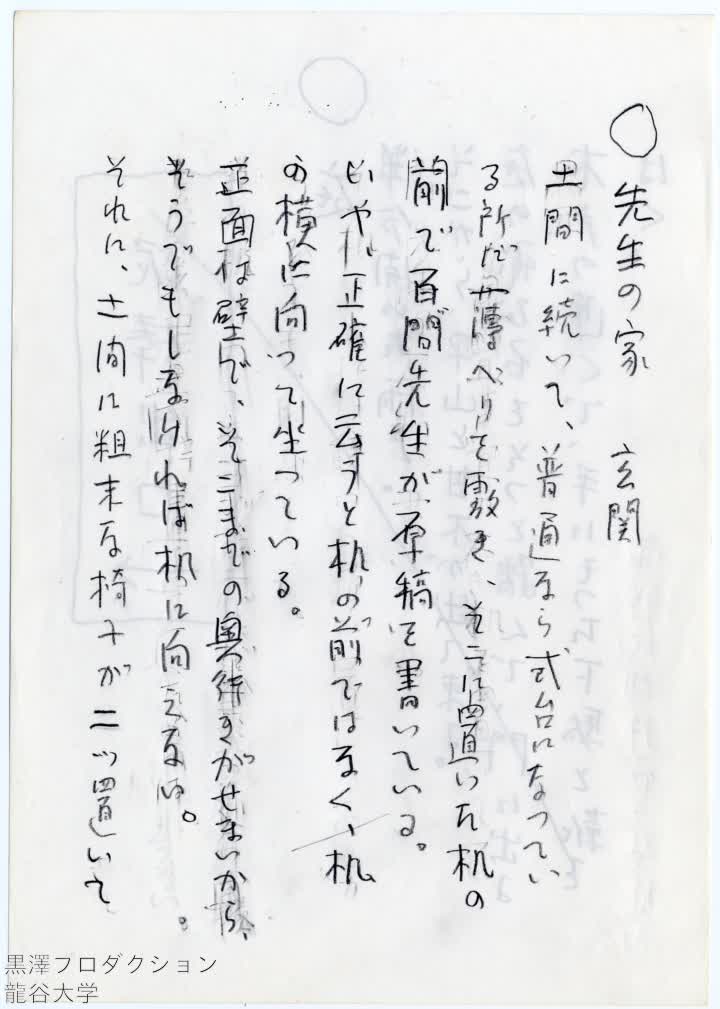 ○先生の家 玄関
土間に続いて、普通なら式台になってい
る所だが薄べりを敷き、そこに置いた机の
前で百間先生が原稿を書いている。
いや、正確に云うと机の前ではなく、机
の横に向って坐っている。
正面は壁で、そこまでの奥行きがせまいから、
そうでもしなければ机に向えない。
それに、土間に粗末な椅子が二つ置いて
黒澤プロダクション
龍谷大学